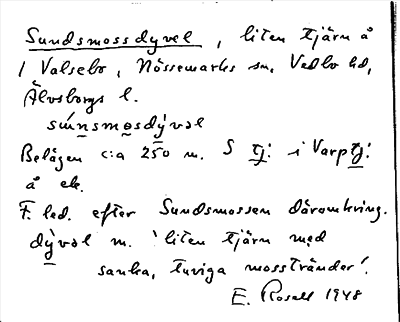 Sundsmossdyvel, liten tjärn å
1 Valsebo, Nössemarks sn, Vedbo hd,
Älvsborgs l.
súnsmosdývəl
Belägen c:a 250 m. S tj. i Varptj.
å ek.
F. led. efter Sundsmossen däromkring.
dývəl m. 'liten tjärn med
sanka, tuviga mosstränder'.
E. Rosell 1948